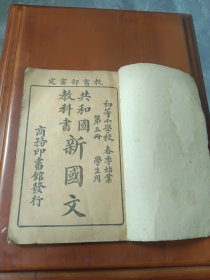 教育部審定
初等小學校 春季始業
第五冊 學生用
共和國
教科書
新國文
商務印書館發行